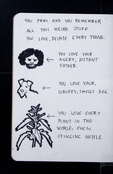 YOU PRAY AND YOU REMEMBER
ALL THIS WEIRD STUFF.
YOU LOVE, DESPITE EVERYTHING.
YOU LOVE YOUR
ANGRY, DISTANT
FATHER.
YOU LOVE YOUR
SCRUFFY, DAFT DOG.
YOU LOVE EVERY
PLANT IN THE
WORLD, EVEN
STINGING NETTLE.